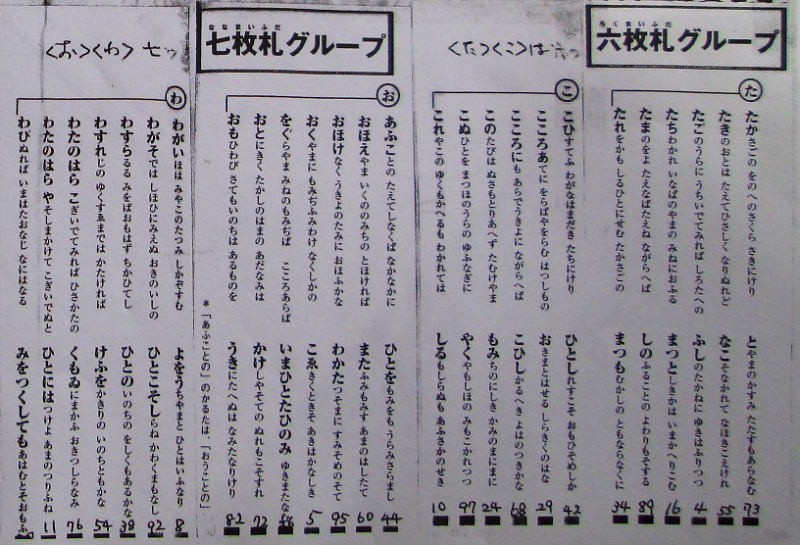 ろくまいふだ
六枚札グループ
<た><こ>は六つ
た
たかさごの をのへのさくら さきにけり とやまのかすみ たたずもあらなむ 73
たきのおとは たえてひさしく なりぬれど なこそながれて なほきこえけれ 55
たごのうらに うちいでてみれば しろたへの ふしのたかねに ゆきはふりつつ 4
たちわかれ いなばのやまの みねにおふる まつとしきかは いまかへりこむ 16
たまのをよ たえなばたえね ながらへば しのふることの よわりもそする 89
たれをかも しるひとにせむ たかさごの まつもむかしの ともならなくに 34
こ
こひすてふ わがなはまだき たちにけり ひとしれすこそ おもひそめしか 42
こころあてに をらばやをらむ はつしもの おきまとはせる しらきくのはな 29
こころにも あらでうきよに ながらへば こひしかるへき よはのつきかな 68
このたびは ぬさもとりあへず たむけやま もみちのにしき かみのまにまに 24
こぬひとを まつほのうらの ゆふなぎに やくやもしほの みもこかれつつ 97
これやこの ゆくもかへるも わかれては しるもしらぬも あふさかのせき 10
ななまいふだ
七枚札グループ
<お><わ> 七ツ
お
あふことの たえてしなくば なかなかに ひとをもみをも うらみさらまし 44
おほえやま いくののみちの とほければ またふみもみす あまのはしたて 60
おほけなく うきよのたみに おほふかな わかたつそまに すみそめのそて 95
おくやまに もみぢふみわけ なくしかの こゑきくときそ あきはかなしき 5
をぐらやま みねのもみぢば こころあらば いまひとたひのみ ゆきまたな
おとにきく たかしのはまの あだなみは かけしやそての ぬれもこそすれ 72
おもひわび さてもいのちは あるものを うきにたへぬは なみたなりけり 82
*「あふことの」のかるたは、「おうことの」
わ
わがいほは みやこのたつみ しかぞすむ よをうちやまと ひとはいふなり 8
わがそでは しほひにみえぬ おきのいしの ひとこそしらね かわくまもなし 92
わすらるる みをばおもはず ちかひてし ひとのいのちの をしくもあるかな 38
わすれじの ゆくすゑまでは かたければ けふをかきりの いのちともかな 54
わたのはら こぎいでてみれば ひさかたの くもゐにまかふ おきつしらなみ 76
わたのはら やそしまかけて こぎいでぬと ひとにはつけよ あまのつりふね 11
わびぬれば いまはたおなじ なにはなる みをつくしても あはむとそおもふ